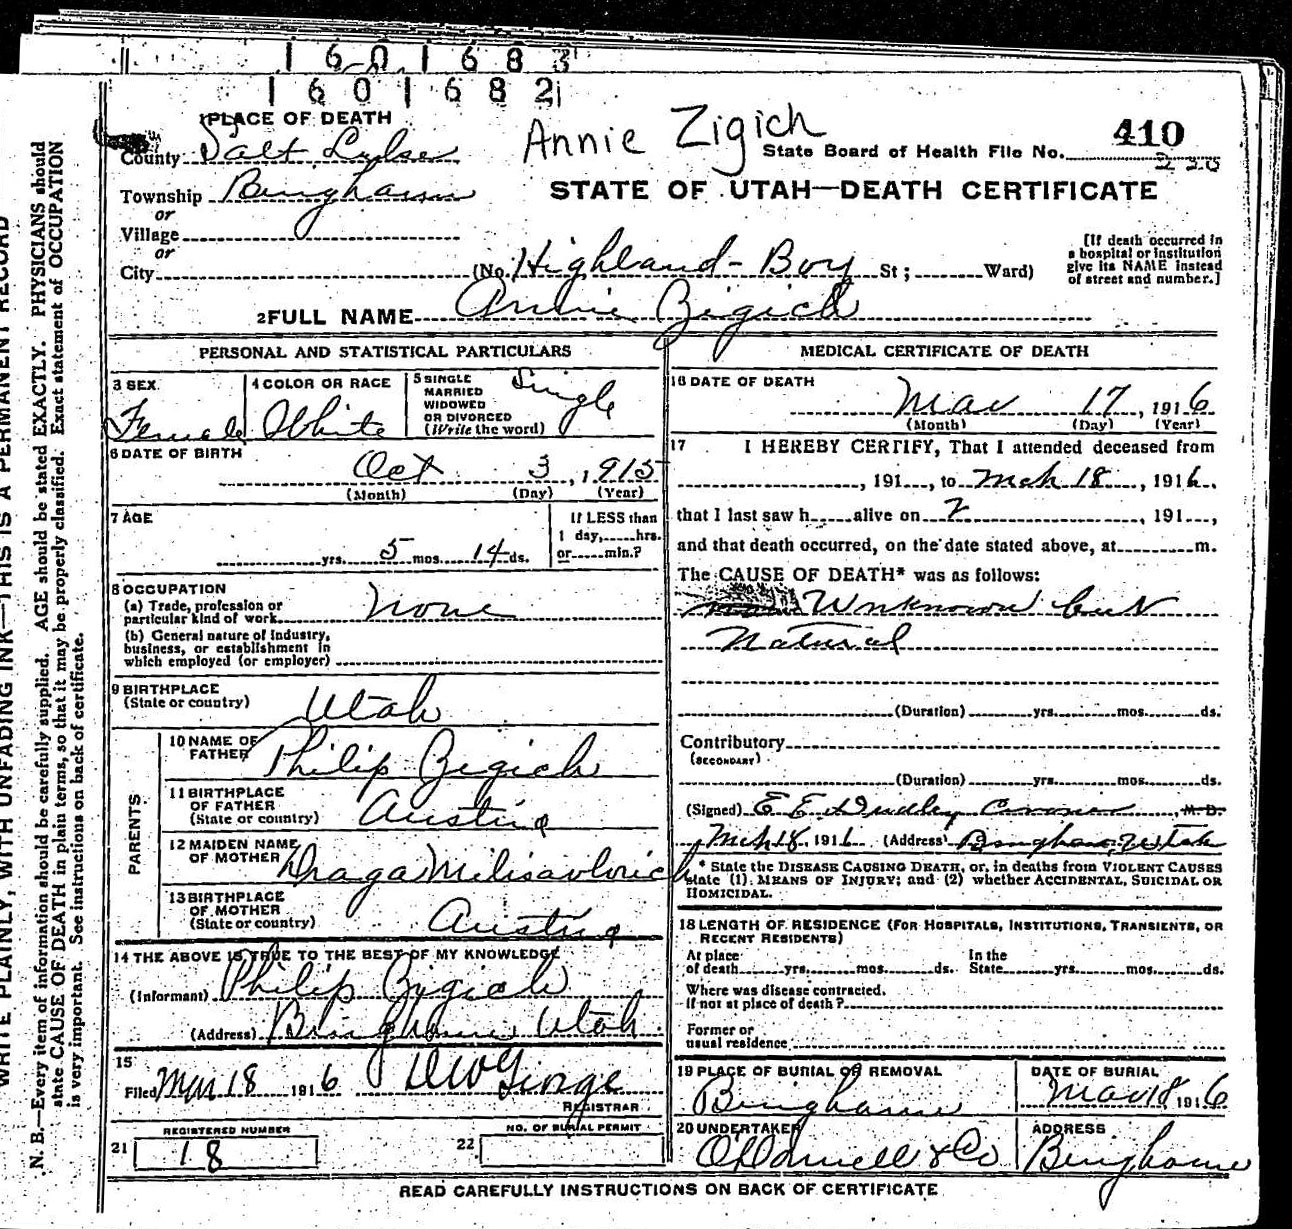 1601683
1601682
PLACE OF DEATH
Annie Zigich
410
County Salt Lake
State Board of Health File No. 220
Township Bingham
STATE OF UTAH—DEATH CERTIFICATE
or
Village
or
City (No. Highland-Boy St; Ward)
[If death occurred in a hospital or institution give its NAME instead of street and number.]
2 FULL NAME Annie Zigich
PERSONAL AND STATISTICAL PARTICULARS
3 SEX
Female
4 COLOR OR RACE
White
5 SINGLE MARRIED WIDOWED OR DIVORCED (Write the word)
Single
6 DATE OF BIRTH
Oct 3, 1915
(Month) (Day) (Year)
7 AGE
yrs. 5 mos. 14 ds.
If LESS than 1 day, hrs. or min.?
8 OCCUPATION
(a) Trade, profession or particular kind of work None
(b) General nature of industry, business, or establishment in which employed (or employer)
9 BIRTHPLACE (State or country) Utah
PARENTS
10 NAME OF FATHER Philip Zigich
11 BIRTHPLACE OF FATHER (State or country) Austria
12 MAIDEN NAME OF MOTHER Draga Milisavlovich
13 BIRTHPLACE OF MOTHER (State or country) Austria
14 THE ABOVE IS TRUE TO THE BEST OF MY KNOWLEDGE
(Informant) Philip Zigich
(Address) Bingham Utah
15
Filed Mar 18 1916 DW George
REGISTRAR
REGISTERED NUMBER
21 18
NO. OF BURIAL PERMIT
22
MEDICAL CERTIFICATE OF DEATH
16 DATE OF DEATH
Mar 17, 1916
(Month) (Day) (Year)
17 I HEREBY CERTIFY, That I attended deceased from
, 191 , to Mch 18, 1916,
that I last saw h alive on , 191 ,
and that death occurred, on the date stated above, at m.
The CAUSE OF DEATH* was as follows:
Unknown but
Natural
(Duration) yrs. mos. ds.
Contributory
(SECONDARY)
(Duration) yrs. mos. ds.
(Signed) E E Dudley Coroner, M.D.
Mch 18, 1916 (Address) Bingham, Utah
* State the DISEASE CAUSING DEATH, or, in deaths from VIOLENT CAUSES state (1) MEANS OF INJURY; and (2) whether ACCIDENTAL, SUICIDAL OR HOMICIDAL.
18 LENGTH OF RESIDENCE (FOR HOSPITALS, INSTITUTIONS, TRANSIENTS, OR RECENT RESIDENTS)
At place of death yrs. mos. ds. In the State yrs. mos. ds.
Where was disease contracted, if not at place of death?
Former or usual residence
19 PLACE OF BURIAL OR REMOVAL
Bingham
DATE OF BURIAL
Mar 18 1916
20 UNDERTAKER
O'Donnell & Co
ADDRESS
Bingham
READ CAREFULLY INSTRUCTIONS ON BACK OF CERTIFICATE
WRITE PLAINLY, WITH UNFADING INK—THIS IS A PERMANENT RECORD
N. B.—Every item of information should be carefully supplied. AGE should be stated EXACTLY. PHYSICIANS should
state CAUSE OF DEATH in plain terms, so that it may be properly classified. Exact statement of OCCUPATION
is very important. See instructions on back of certificate.